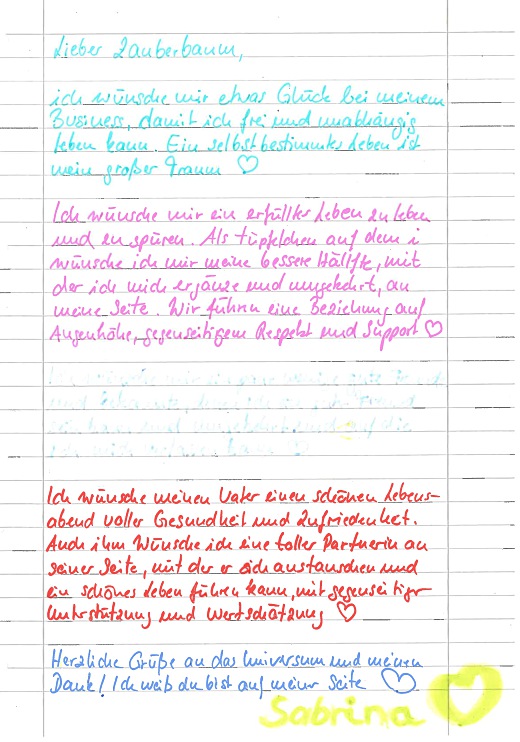 Lieber Zauberbaum,
ich wünsche mir etwas Glück bei meinem
Business, damit ich frei und unabhängig
leben kann. Ein selbstbestimmtes Leben ist
mein großer Traum ♡
Ich wünsche mir ein erfülltes Leben zu leben
und zu spüren. Als tüpfelchen auf dem i
wünsche ich mir meine bessere Hälfte, mit
der ich mich ergänze und umgekehrt, an
meine Seite. Wir führen eine Beziehung auf
Augenhöhe, gegenseitigem Respekt und Support ♡
Ich wünsche mir ein paar
und
auf die
ich mich
Ich wünsche meinen Vater einen schönen Lebens-
abend voller Gesundheit und Zufriedenheit.
Auch ihm Wünsche ich eine toller Partnerin an
seiner Seite, mit der er sich austauschen und
ein schönes Leben führen kann, mit gegenseitiger
Unterstützung und Wertschätzung ♡
Herzliche Grüße an das Universum und meinen
Dank! Ich weiß du bist auf meiner Seite ♡
Sabrina